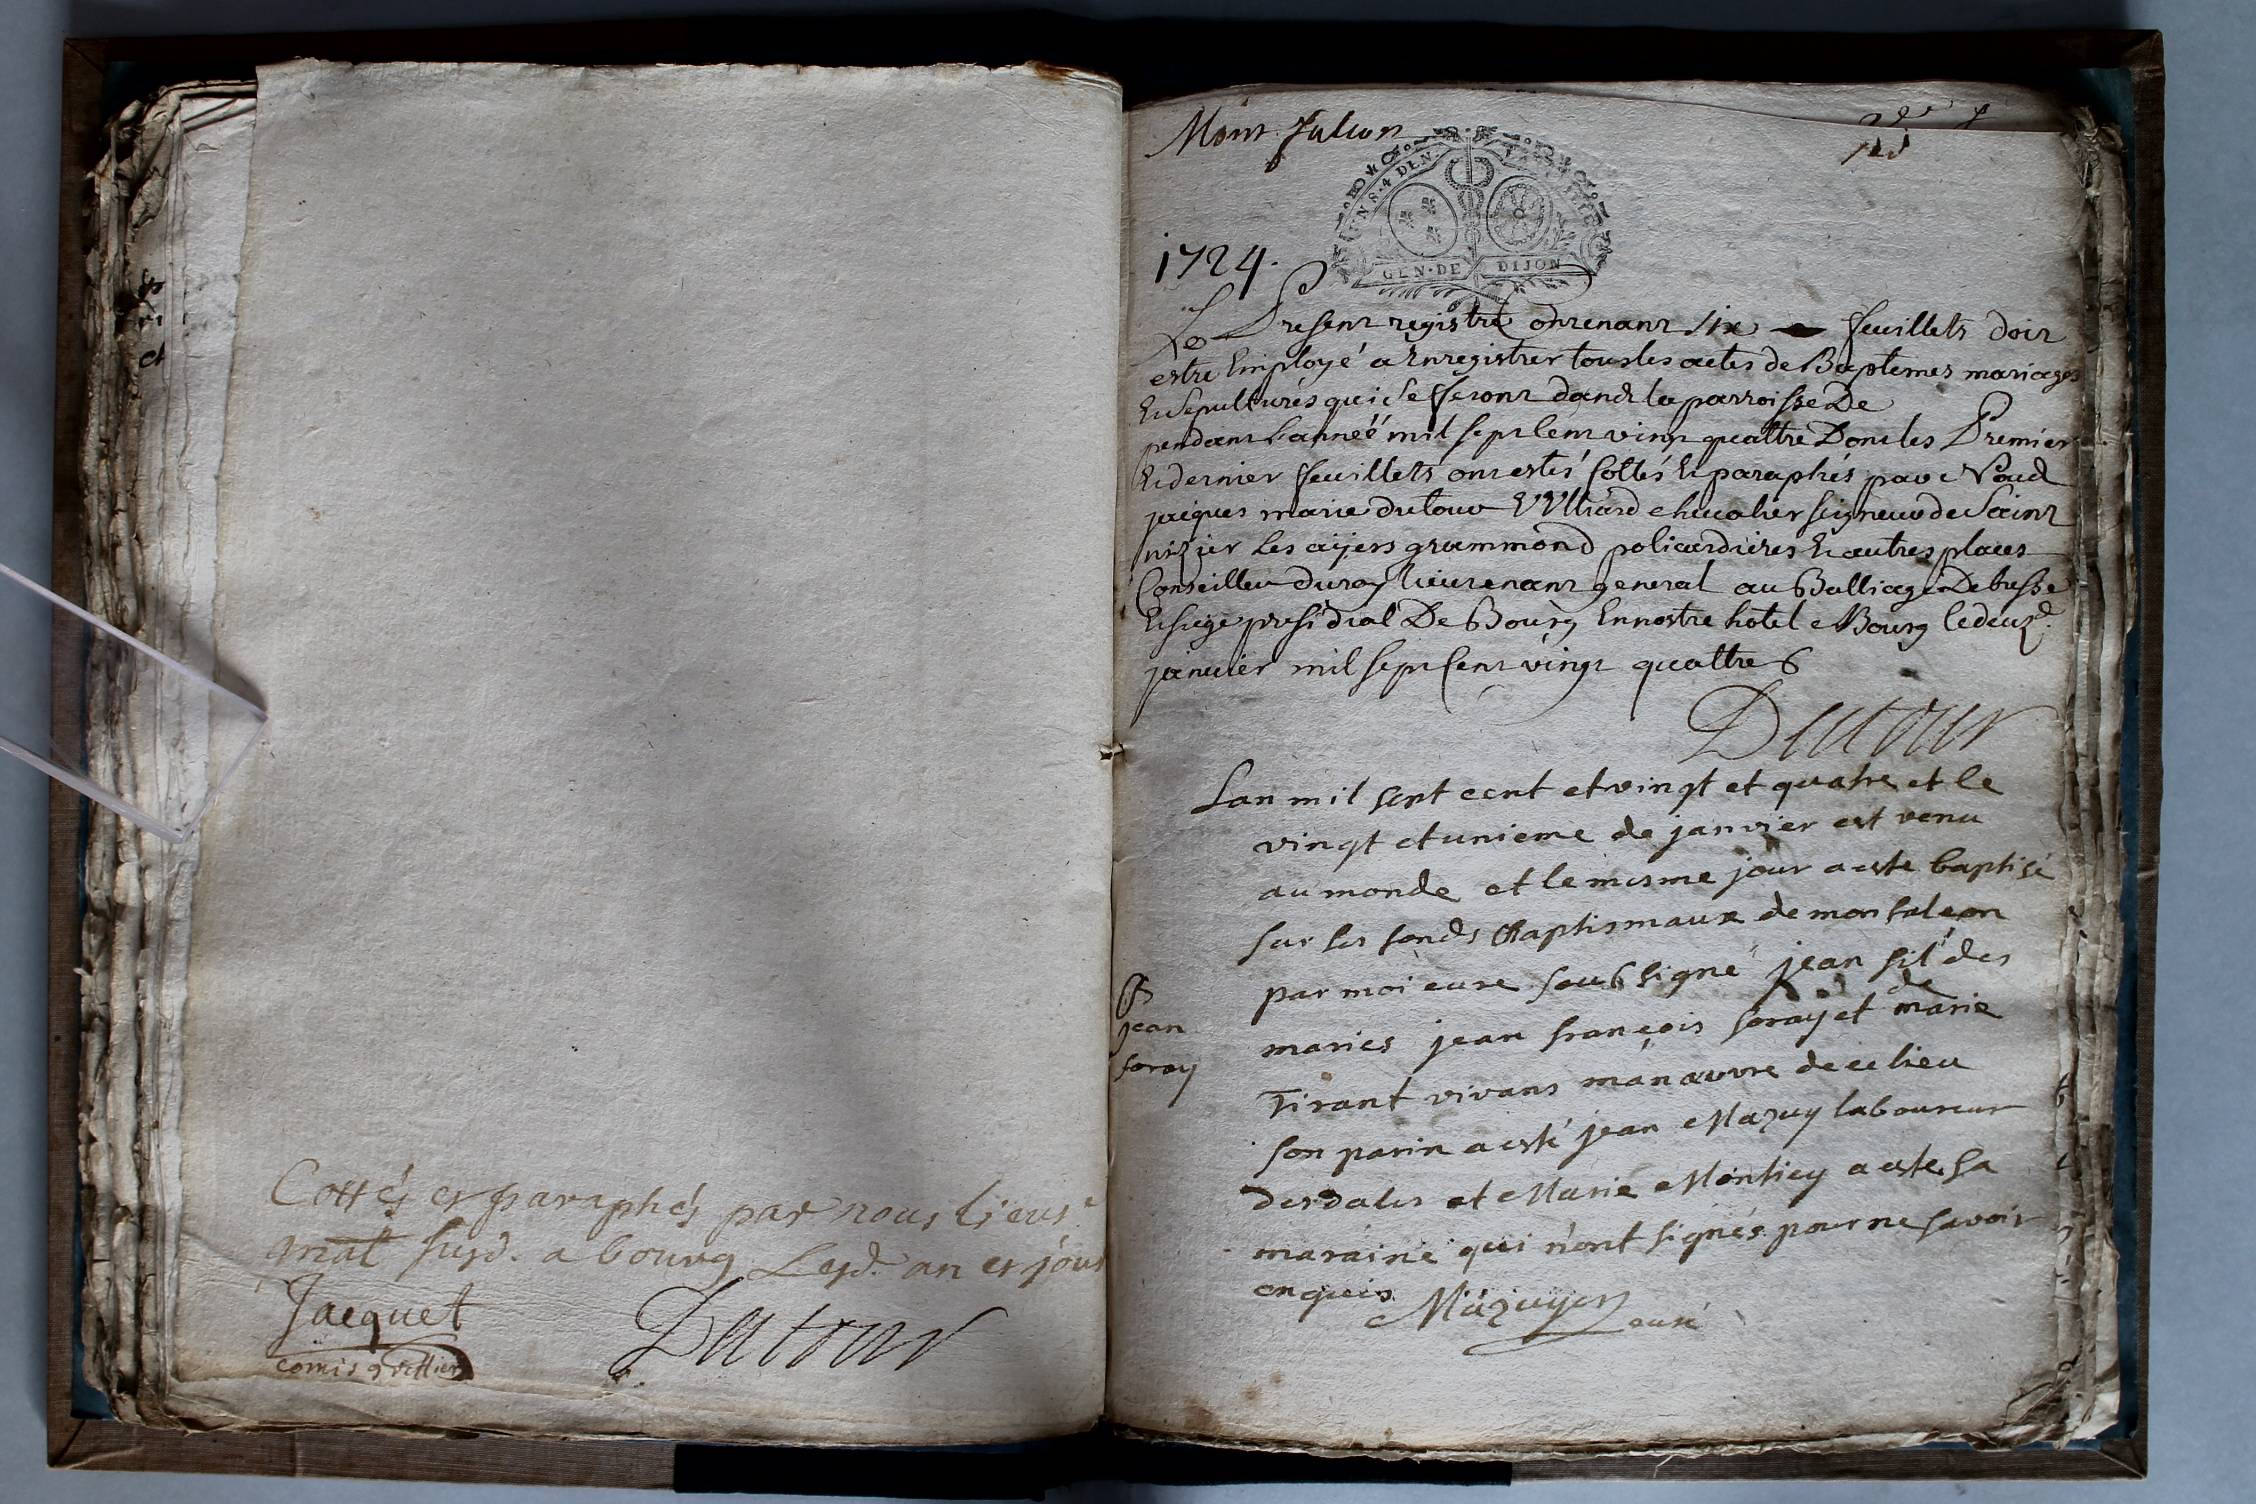 Cottés et paraphés par nous lieut.
gnal susd. a bourg Lesd. an et jour
Jacquet
comis greffier
Dutour
Mont falcon
1724.
UN S. 4 DEN.
GEN. DE DIJON
Le Present registre contenant six feuillets doit
estre Employé a Enregistrer tous les actes de Baptemes mariages
Et Sepultures qui se fferont dans la parroisse De
pendant L'anneé mil sept Cent vingt quattre Dont les Premier
Et dernier feuillets ont estés Cottés Et paraphés par Nous
jacques marie dutour Vulliard chevalier seigneur de Saint
nizier les grammond policardieres Et autres places
Conseiller du roy lieutenant general au Balliage De bresse
Et siege presidial De Bourg En nostre hotel a Bourg le deuxe.
janvier mil sept Cent vingt quattre
Dutour
Lan mil sept cent et vingt et quatre et le
vingt et unieme de janvier est venu
au monde et le mesme jour a esté baptisé
sur les fonds Baptismaux de monfalcon
par moi curé soubsigné jean fil des
mariés jean françois foray et de marie
Tirant vivans manœuvre de ce lieu
son parin a esté jean Mazuy laboureur
et Marie Montiey a esté sa
maraine qui n'ont signés pour ne savoir
enquis Mazuyer curé
B
jean
foray